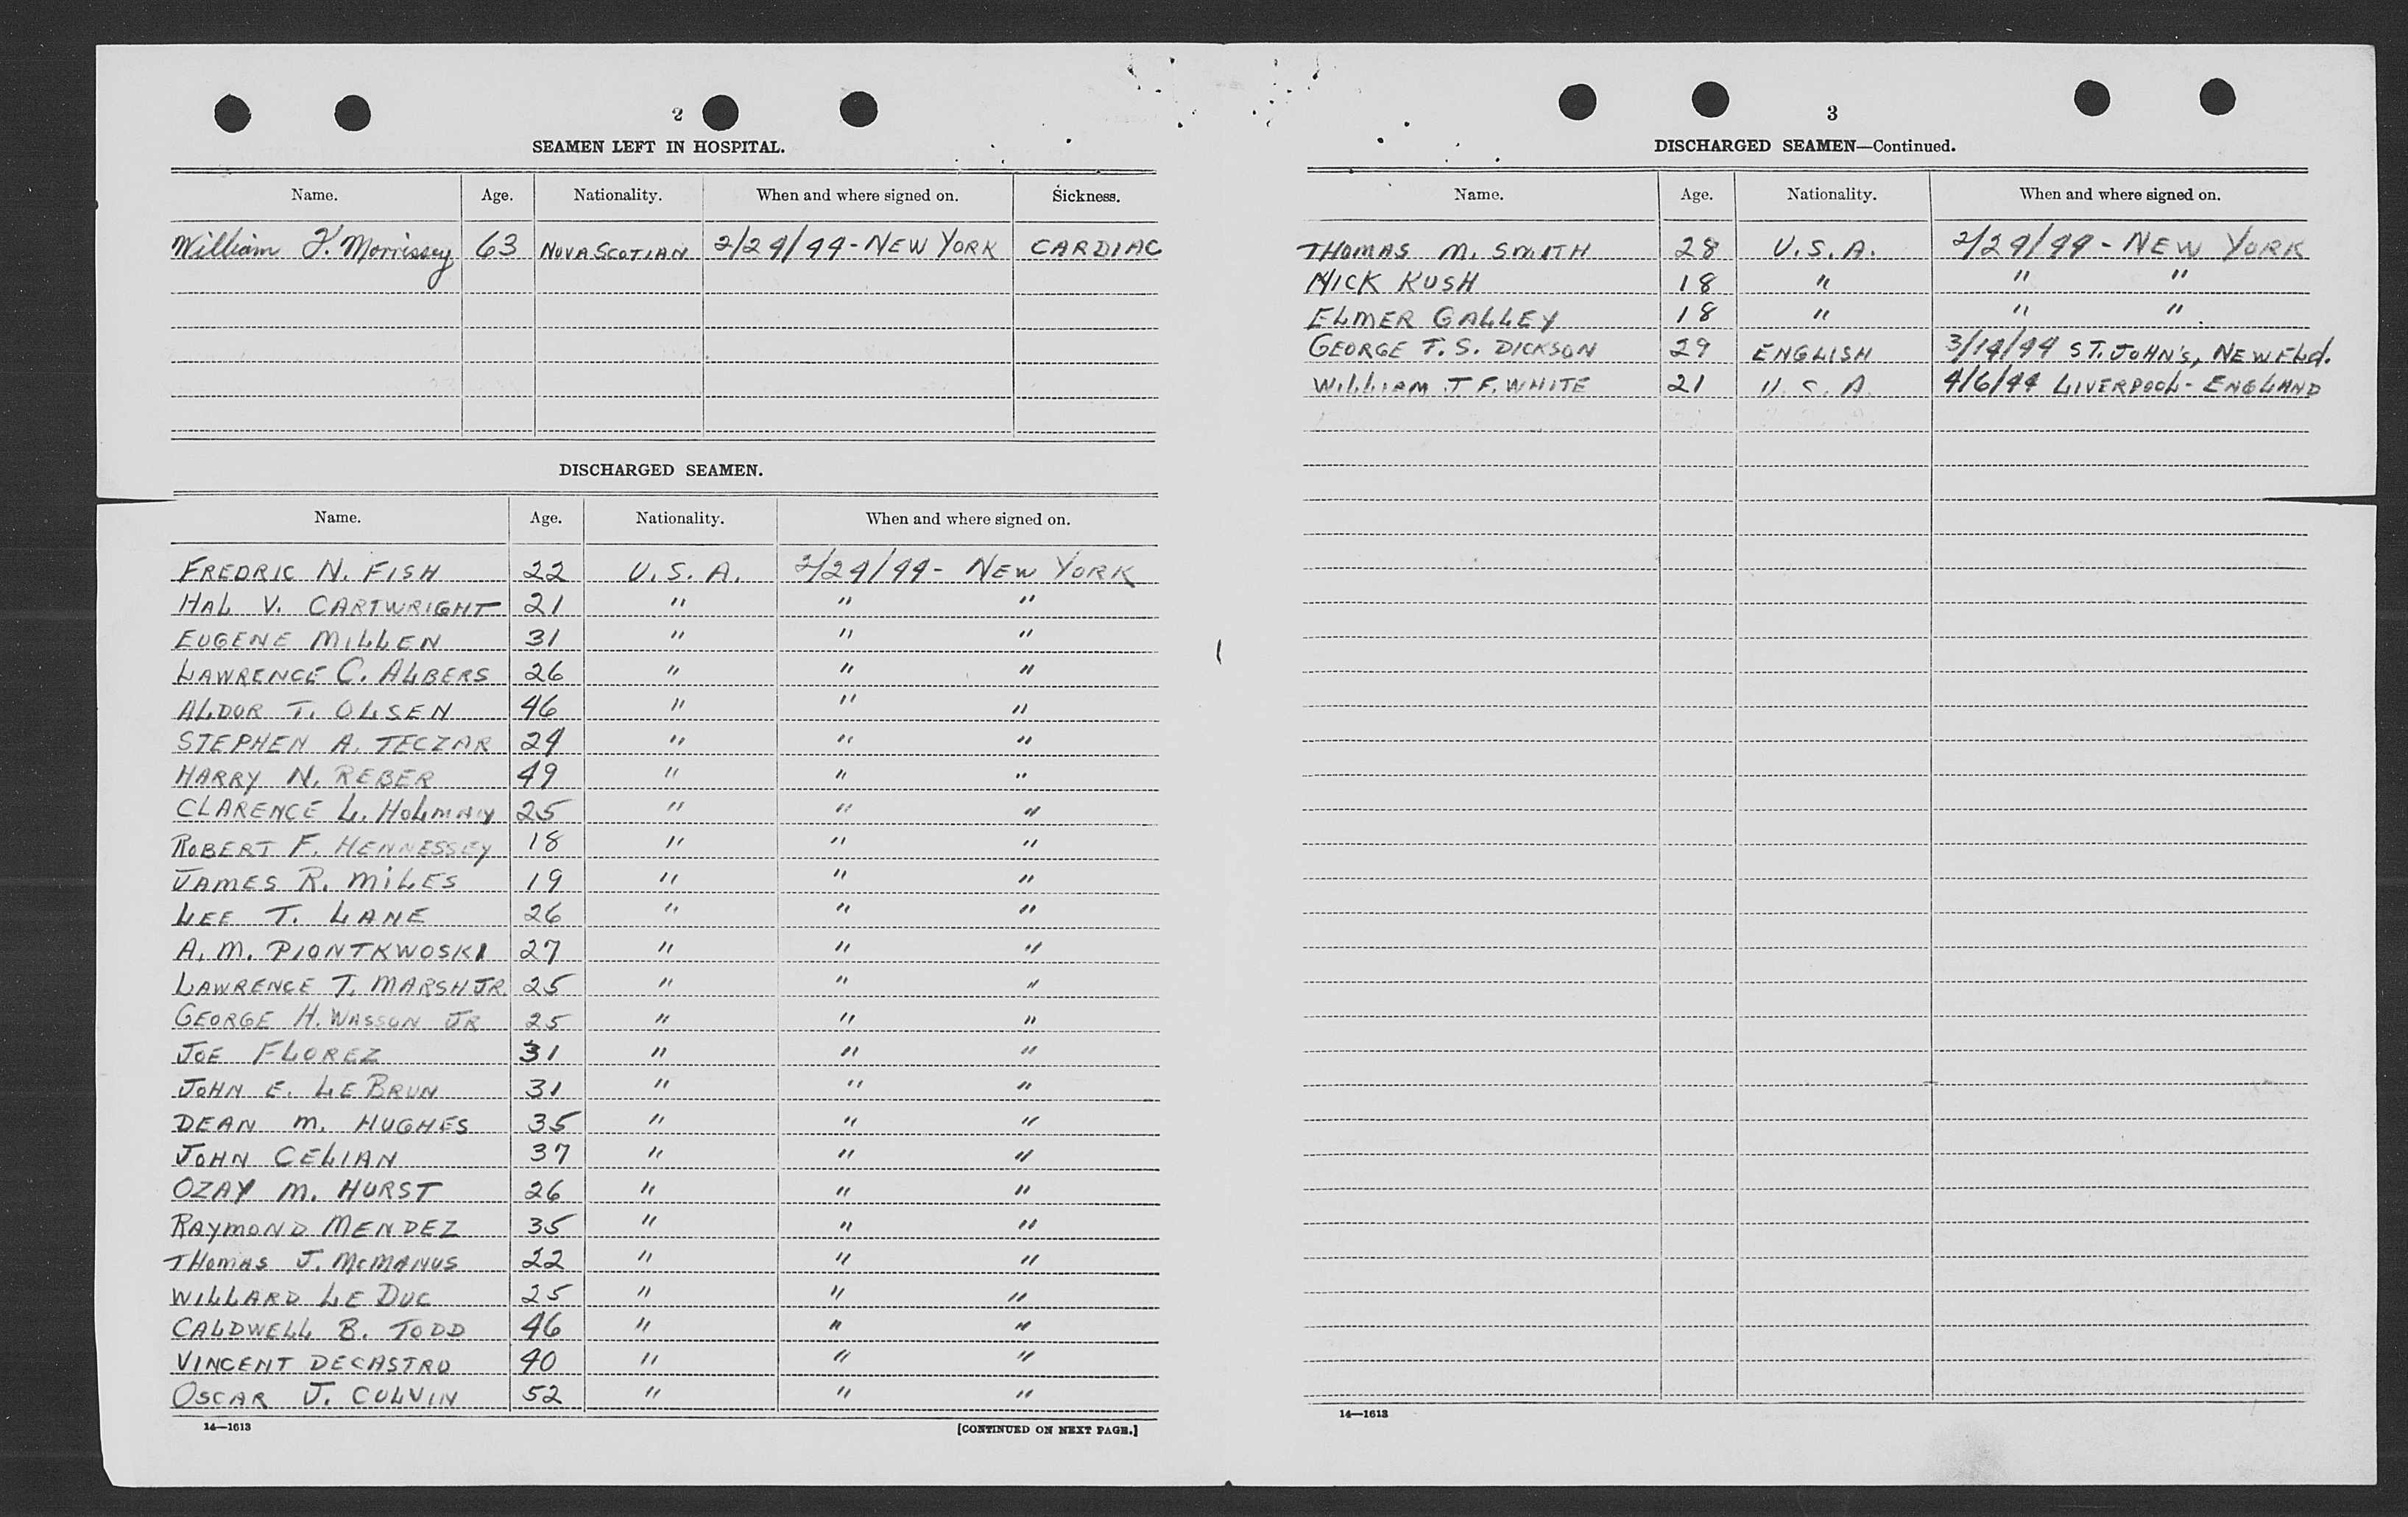 2
SEAMEN LEFT IN HOSPITAL.
Name. Age. Nationality. When and where signed on. Sickness.
William F. Morrissey 63 NOVA SCOTIAN 2/24/44 - NEW YORK CARDIAC
DISCHARGED SEAMEN.
Name. Age. Nationality. When and where signed on.
FREDRIC N. FISH 22 U.S.A. 2/24/44 - NEW YORK
HAL V. CARTWRIGHT 21 " " "
EUGENE MILLEN 31 " " "
LAWRENCE C. ALBERS 26 " " "
ALDOR T. OLSEN 46 " " "
STEPHEN A. TECZAR 24 " " "
HARRY N. REBER 49 " " "
CLARENCE L. HOLMAN 25 " " "
ROBERT F. HENNESSEY 18 " " "
JAMES R. MILES 19 " " "
LEE T. LANE 26 " " "
A. M. PIONTKWOSKI 27 " " "
LAWRENCE T. MARSH JR. 25 " " "
GEORGE H. WASSON JR 25 " " "
JOE FLOREZ 31 " " "
JOHN E. LE BRUN 31 " " "
DEAN M. HUGHES 35 " " "
JOHN CELIAN 37 " " "
OZAY M. HURST 26 " " "
RAYMOND MENDEZ 35 " " "
THOMAS J. McMANUS 22 " " "
WILLARD LE DUC 25 " " "
CALDWELL B. TODD 46 " " "
VINCENT DECASTRO 40 " " "
OSCAR J. COLVIN 52 " " "
14—1613 [CONTINUED ON NEXT PAGE.]
3
DISCHARGED SEAMEN—Continued.
Name. Age. Nationality. When and where signed on.
THOMAS M. SMITH 28 U.S.A. 2/24/44 - NEW YORK
NICK KUSH 18 " " "
ELMER GALLEY 18 " " "
GEORGE T. S. DICKSON 29 ENGLISH 3/14/44 ST. JOHN'S, NEWFLd.
WILLIAM J F. WHITE 21 U.S.A. 4/6/44 LIVERPOOL - ENGLAND
14—1613